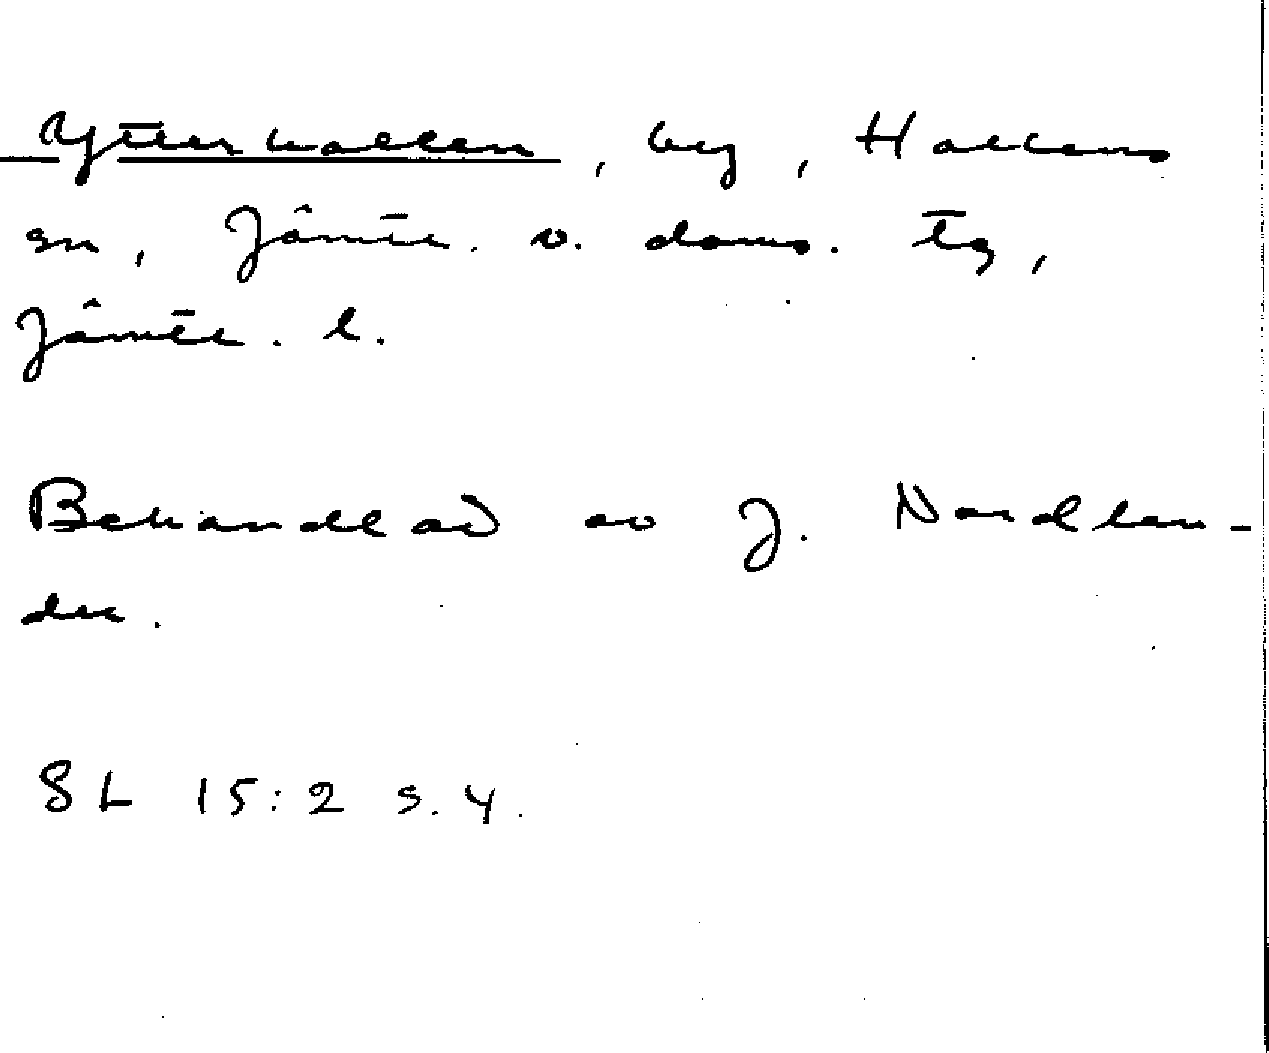 Ytterhallen, by, Hallens
sn, Jämtl. v. doms. tg,
Jämtl. l.
Behandlad av J. Nordlan-
der.
SL 15:2 s. 4.